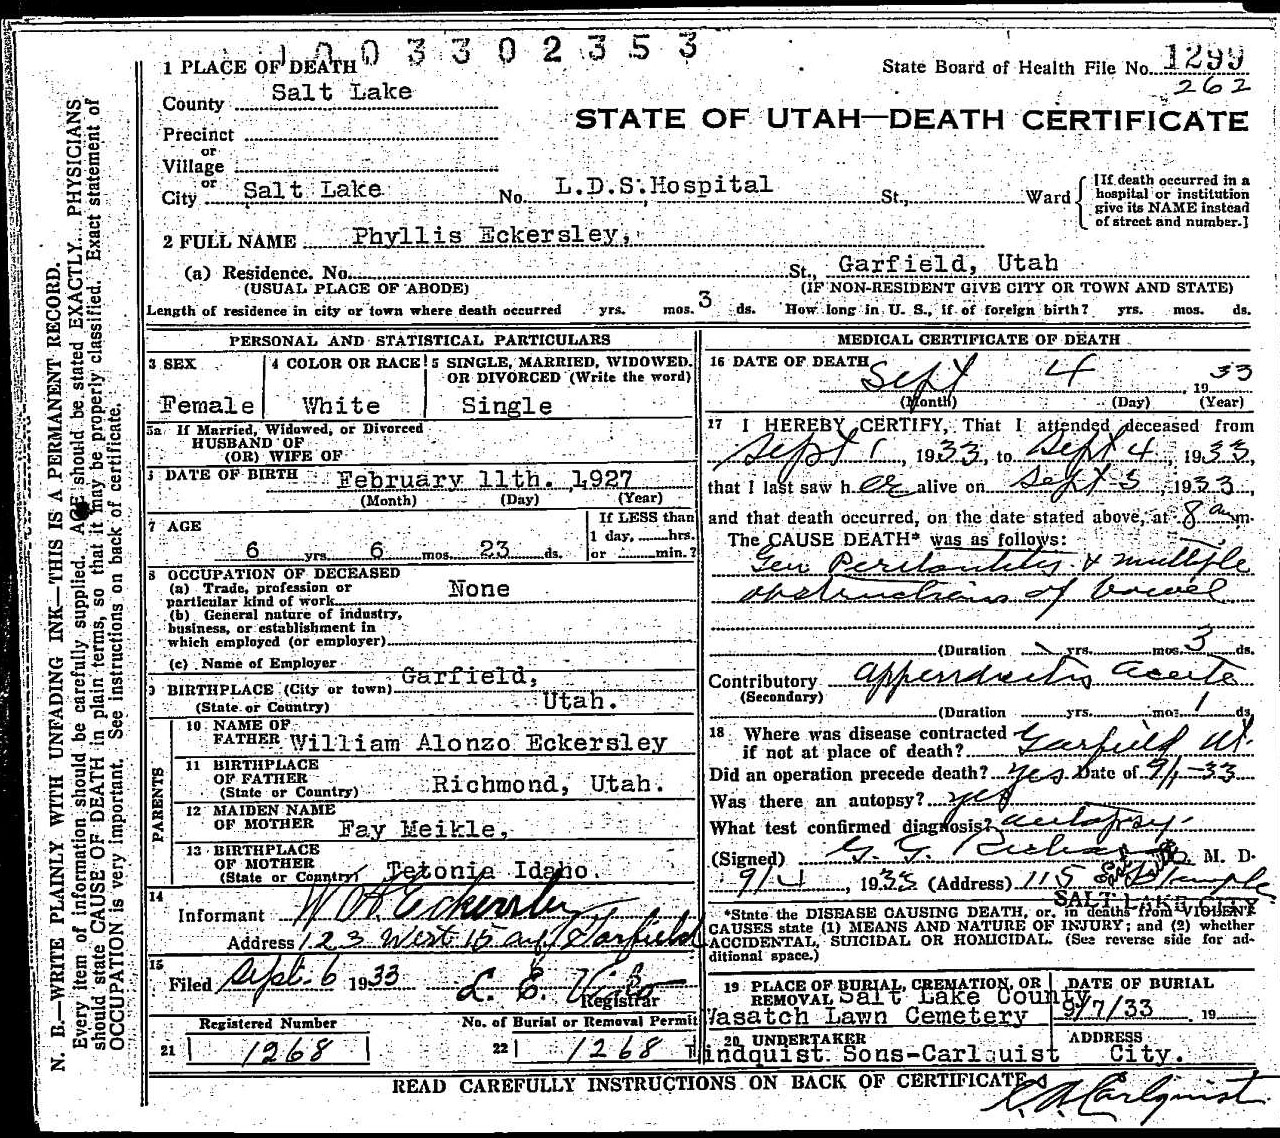 1003302353
1 PLACE OF DEATH
State Board of Health File No. 1299
262
County Salt Lake
STATE OF UTAH—DEATH CERTIFICATE
Precinct
or
Village
or
City Salt Lake No. L.D.S. Hospital St., Ward
[If death occurred in a
hospital or institution
give its NAME instead
of street and number.]
2 FULL NAME Phyllis Eckersley,
(a) Residence. No. St., Garfield, Utah
(USUAL PLACE OF ABODE) (IF NON-RESIDENT GIVE CITY OR TOWN AND STATE)
Length of residence in city or town where death occurred yrs. mos. 3 ds. How long in U. S., if of foreign birth? yrs. mos. ds.
PERSONAL AND STATISTICAL PARTICULARS
3 SEX
Female
4 COLOR OR RACE
White
5 SINGLE, MARRIED, WIDOWED.
OR DIVORCED (Write the word)
Single
5a If Married, Widowed, or Divorced
HUSBAND OF
(OR) WIFE OF
6 DATE OF BIRTH February 11th. 1927
(Month) (Day) (Year)
7 AGE
6 yrs 6 mos. 23 ds.
If LESS than
1 day, hrs.
or min.?
8 OCCUPATION OF DECEASED
(a) Trade, profession or
particular kind of work None
(b) General nature of industry,
business, or establishment in
which employed (or employer)
(c) Name of Employer
9 BIRTHPLACE (City or town) Garfield,
(State or Country) Utah.
PARENTS
10 NAME OF
FATHER William Alonzo Eckersley
11 BIRTHPLACE
OF FATHER
(State or Country) Richmond, Utah.
12 MAIDEN NAME
OF MOTHER Fay Meikle,
13 BIRTHPLACE
OF MOTHER
(State or Country) Tetonia Idaho.
14
Informant W A Eckersley
Address 123 West 15 av Garfield
15
Filed Sept. 6 1933 L. E.
Registrar
Registered Number
21 1268
No. of Burial or Removal Permit
22 1268
MEDICAL CERTIFICATE OF DEATH
16 DATE OF DEATH Sept 4 1933
(Month) (Day) (Year)
17 I HEREBY CERTIFY, That I attended deceased from
Sept 1, 1933, to Sept 4, 1933,
that I last saw h er alive on Sept 3, 1933,
and that death occurred, on the date stated above, at 8 am.
The CAUSE DEATH* was as follows:
Gen Peritonitis & multiple
obstructions of bowel
(Duration yrs. mos. 3 ds.
Contributory appendicitis acute
(Secondary)
(Duration yrs. mos. 1 ds.
18 Where was disease contracted
if not at place of death? Garfield Ut.
Did an operation precede death? yes Date of 9/1-33
Was there an autopsy? yes
What test confirmed diagnosis? autopsy.
(Signed) G. G. Richards M. D.
9/4, 1933 (Address) 115 Temple
SALT LAKE CITY
*State the DISEASE CAUSING DEATH, or, in deaths from VIOLENT
CAUSES state (1) MEANS AND NATURE OF INJURY; and (2) whether
ACCIDENTAL, SUICIDAL OR HOMICIDAL. (See reverse side for ad-
ditional space.)
19 PLACE OF BURIAL, CREMATION, OR
REMOVAL Salt Lake County
Wasatch Lawn Cemetery
DATE OF BURIAL
9/7/33 19
20 UNDERTAKER
indquist Sons-Carlquist
ADDRESS
City.
READ CAREFULLY INSTRUCTIONS ON BACK OF CERTIFICATE
Carlquist
N. B.—WRITE PLAINLY WITH UNFADING INK—THIS IS A PERMANENT RECORD.
Every item of information should be carefully supplied. AGE should be stated EXACTLY. PHYSICIANS
should state CAUSE OF DEATH in plain terms, so that it may be properly classified. Exact statement of
OCCUPATION is very important. See instructions on back of certificate.